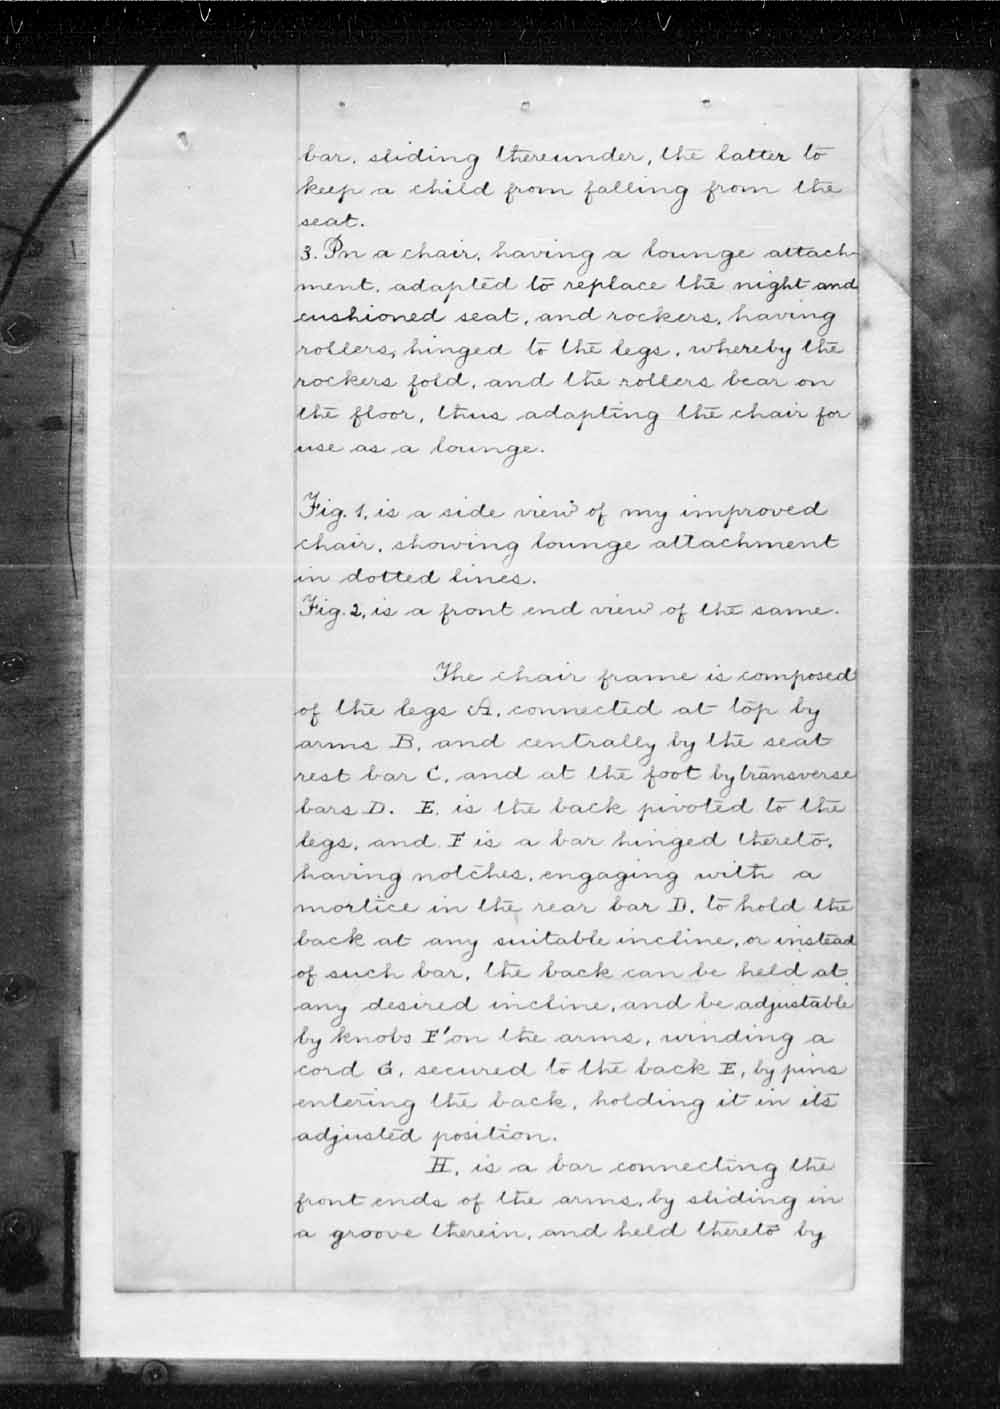 bar, sliding thereunder, the latter to
keep a child from falling from the
seat.
3. In a chair, having a lounge attach-
ment, adapted to replace the night and
cushioned seat, and rockers, having
rollers, hinged to the legs, whereby the
rockers fold, and the rollers bear on
the floor, thus adapting the chair for
use as a lounge.
Fig. 1, is a side view of my improved
chair, showing lounge attachment
in dotted lines.
Fig. 2, is a front end view of the same.
The chair frame is composed
of the legs A, connected at top by
arms B, and centrally by the seat
rest bar C, and at the foot by transverse
bars D. E, is the back pivoted to the
legs, and F is a bar hinged thereto,
having notches, engaging with a
mortice in the rear bar D, to hold the
back at any suitable incline, or instead
of such bar, the back can be held at
any desired incline, and be adjustable
by knobs F' on the arms, winding a
cord G, secured to the back E, by pins
entering the back, holding it in its
adjusted position.
H, is a bar connecting the
front ends of the arms, by sliding in
a groove therein, and held thereto by